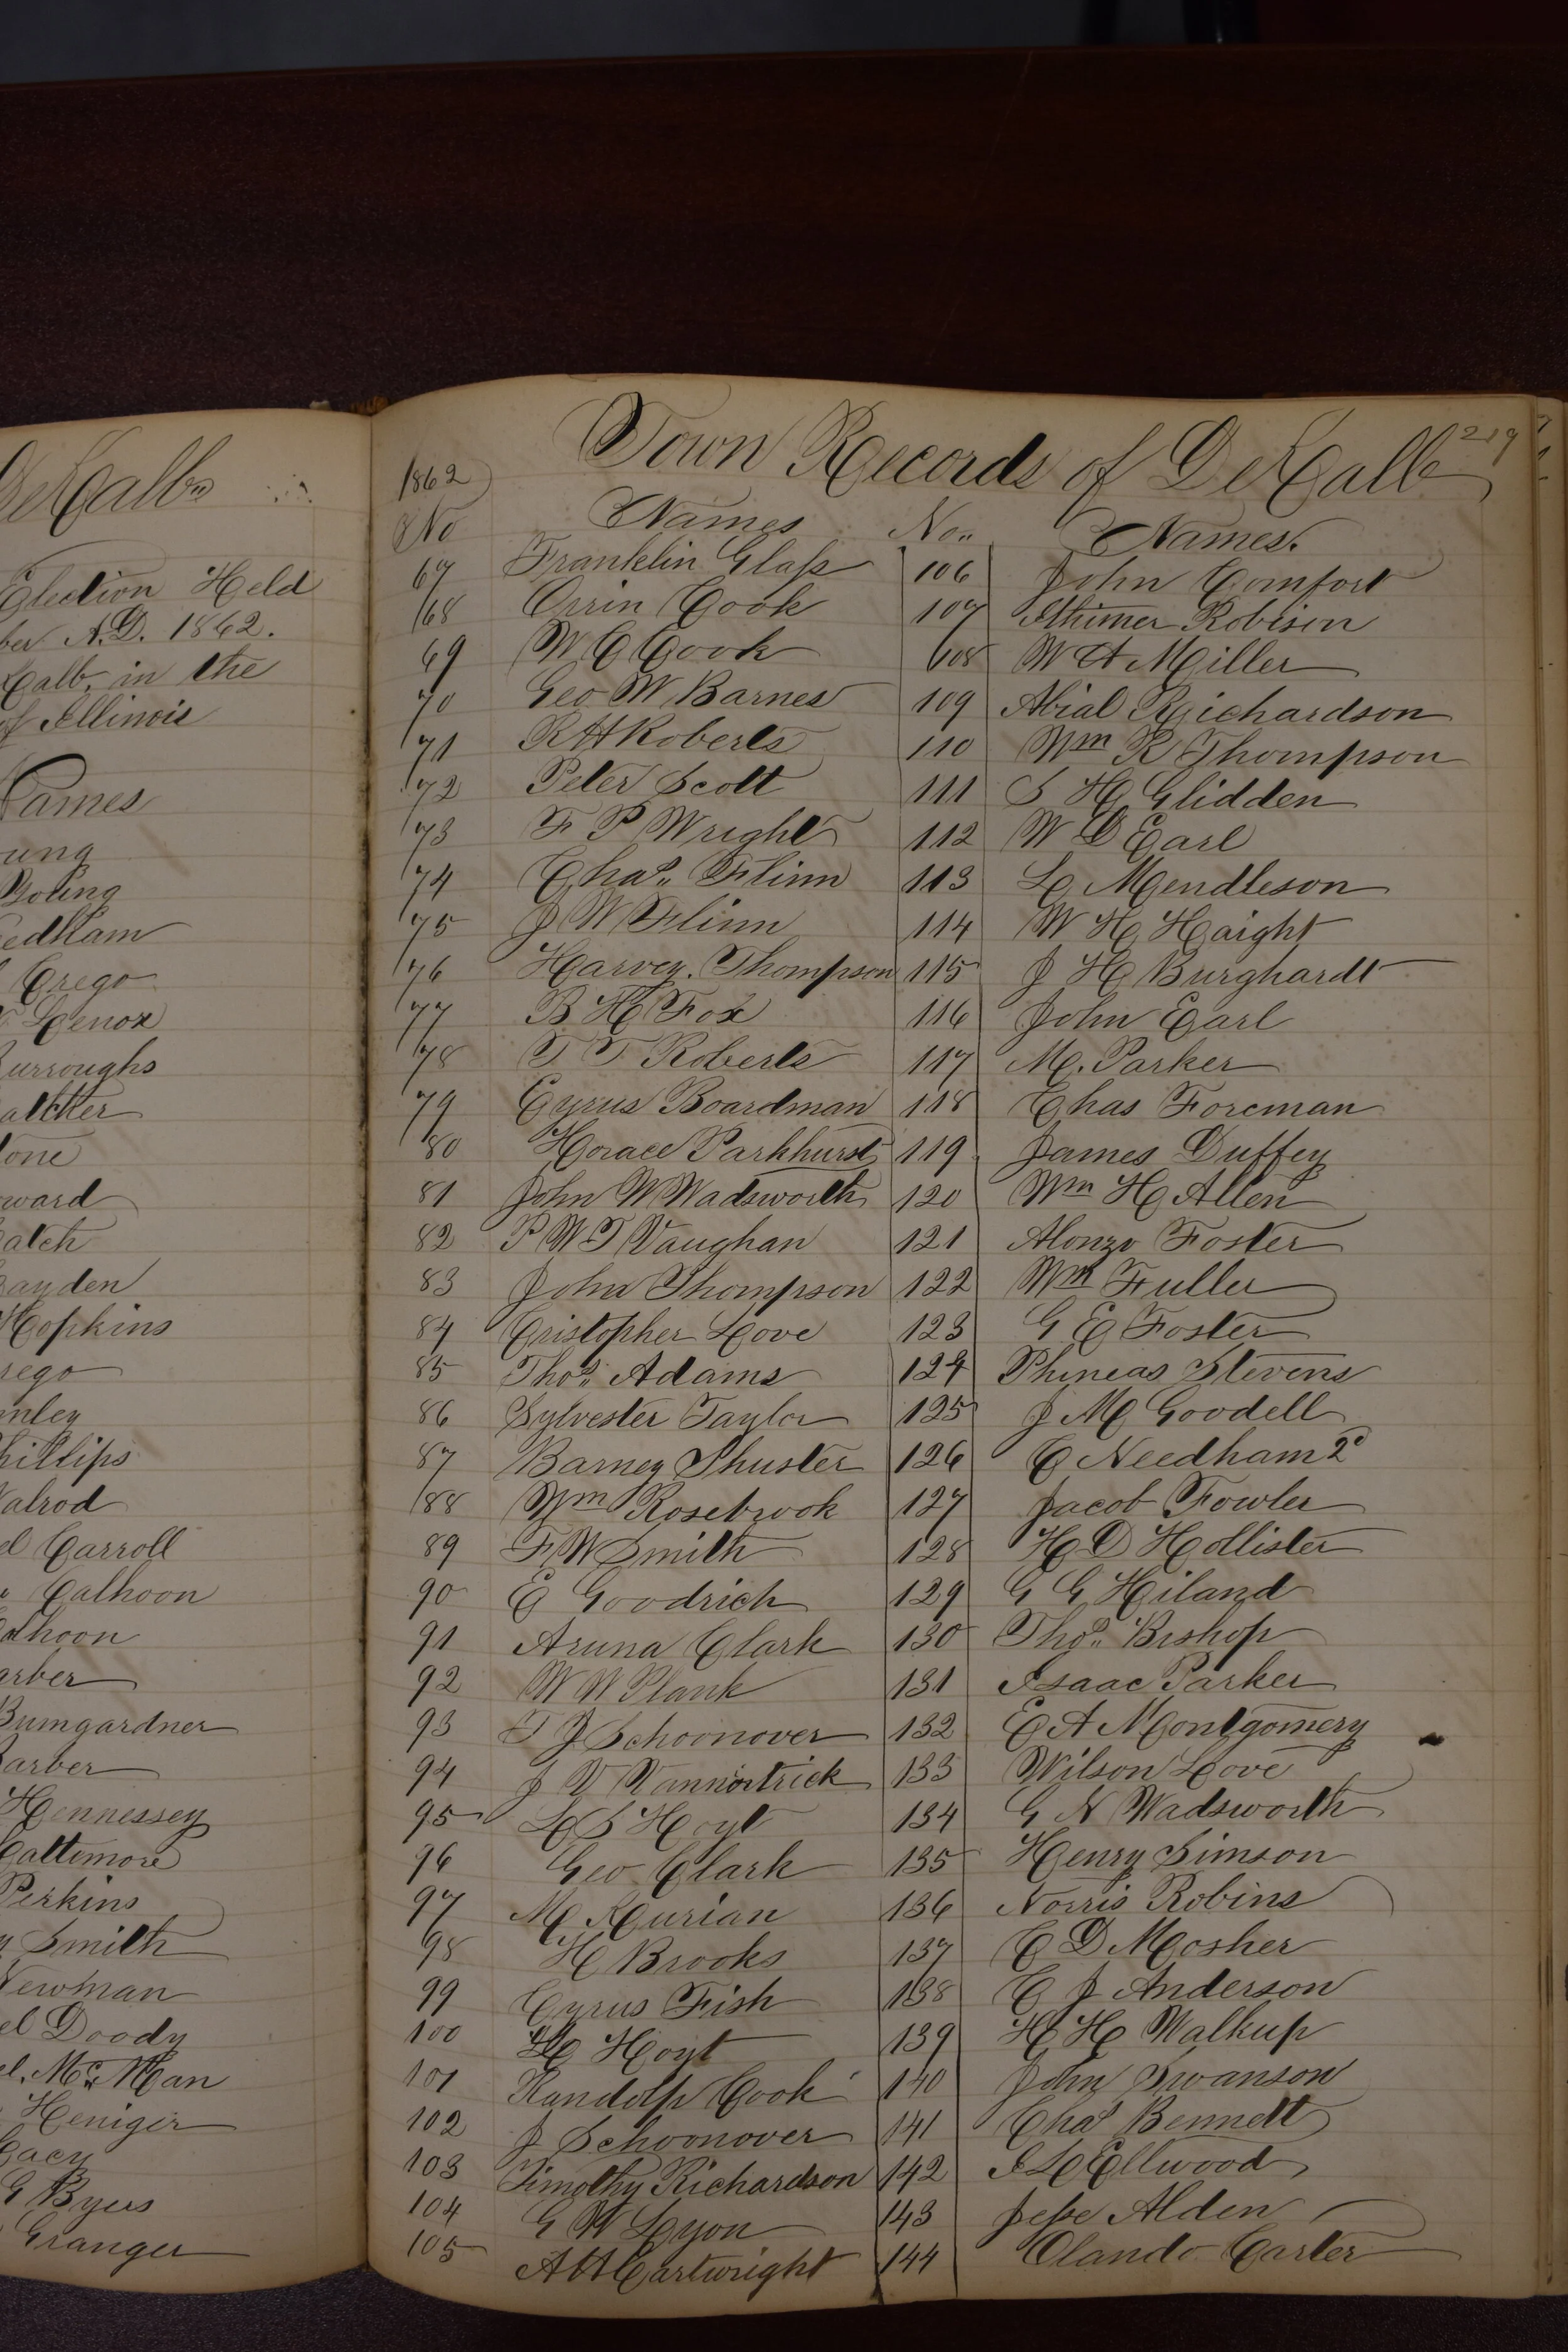 DeKalb
Election Held
ber A.D. 1862.
Kalb, in the
of Illinois
Names
ung
Young
eedham
Crego
Lenox
urroughs
atcher
tone
ward
atch
ayden
Hopkins
rego
nley
hillips
Walrod
el Carroll
Calhoon
alhoon
arber
Bumgardner
Barber
Hennessey
Baltimore
Perkins
y Smith
Newman
el Doody
el. Mc Man
Heniger
Gacy
G Byers
Granger
Town Records of DeKalb 219
1862
No Names No.. Names.
67 Franklin Glass 106 John Comfort
68 Orrin Cook 107 Robison
69 W C Cook 108 W A Miller
70 Geo W Barnes 109 Abial Richardson
71 R H Roberts 110 Wm R Thompson
72 Peter Scott 111 S H Glidden
73 F P Wright 112 W D Earl
74 Chas.. Flinn 113 L Mendleson
75 J W Flinn 114 W H Haight
76 Harvey. Thompson 115 J H Burghardt
77 B H Fox 116 John Earl
78 T T Roberts 117 M. Parker
79 Cyrus Boardman 118 Chas Foreman
80 Horace Parkhurst 119 James Duffey
81 John W Wadsworth 120 Wm H Allen
82 P W T Vaughan 121 Alonzo Foster
83 John Thompson 122 Wm Fuller
84 Cristopher Love 123 G E Foster
85 Thos.. Adams 124 Phineas Stevens
86 Sylvester Taylor 125 J M Goodell
87 Barney Shuster 126 C Needham 2d
88 Wm Rosebrook 127 Jacob Fowler
89 F W Smith 128 H D Hollister
90 E Goodrich 129 G G Hiland
91 Aruna Clark 130 Thos.. Bishop
92 W W Plank 131 Isaac Parker
93 T J Schoonover 132 E A Montgomery
94 J V Vannortrick 133 Wilson Love
95 L S Hoyt 134 G N Wadsworth
96 Geo Clark 135 Henry Simson
97 M Kurian 136 Norris Robins
98 H Brooks 137 C D Mosher
99 Cyrus Fish 138 C J Anderson
100 Hoyt 139 H H Walkup
101 Randolp Cook 140 John Swanson
102 J Schoonover 141 Chas Bennett
103 Timothy Richardson 142 I L Ellwood
104 G W Lyon 143 Jesse Alden
105 A H Cartwright 144 Olando Carter